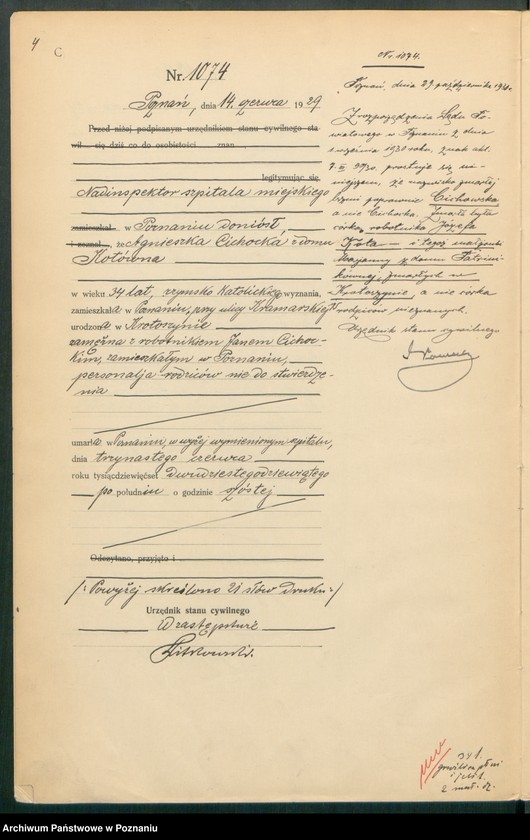 4
C
Nr. 1074
Poznań, dnia 14 czerwca 1929
Przed niżej podpisanym urzędnikiem stanu cywilnego sta-
wił się dziś co do osobistości znan
legitymując się
Nadinspektor szpitala miejskiego
zamieszkał w Poznaniu doniósł,
i zeznał, że Agnieszka Cichocka z domu
Kotówna
w wieku 34 lat, rzymsko katolickiego wyznania,
zamieszkała w Poznaniu, przy ulicy Kramarskiej
urodzona w Krotoszynie
zamężna z robotnikiem Janem Cichoc-
kim, zamieszkałym w Poznaniu,
personalja rodziców nie do stwierdze-
nia
umarła w Poznaniu, w wyżej wymienionym szpitalu,
dnia trzynastego czerwca
roku tysiącdziewięćset dwudziestegodziewiątego
po południu o godzinie szóstej
Odczytano, przyjęto i
/: Powyżej skreślono 21 słów druku :/
Urzędnik stanu cywilnego
W zastępstwie
Nr. 1074.
Poznań, dnia 29 października 1930 r.
Z rozporządzenia Sądu Po-
wiatowego w Poznaniu z dnia
września 1930 roku, znak akt.
prostuje się ni-
niejszem, że nazwisko zmarłej
brzmi poprawnie Cichowska
a nie Cichocka. Zmarła była
córką robotnika Józefa
Kota — i tegoż małżonki
Marjanny z domu
zmarłych w
Krotoszynie, a nie córką
rodziców nieznanych.
Urzędnik stanu cywilnego
34 l.
2 mał.
Archiwum Państwowe w Poznaniu